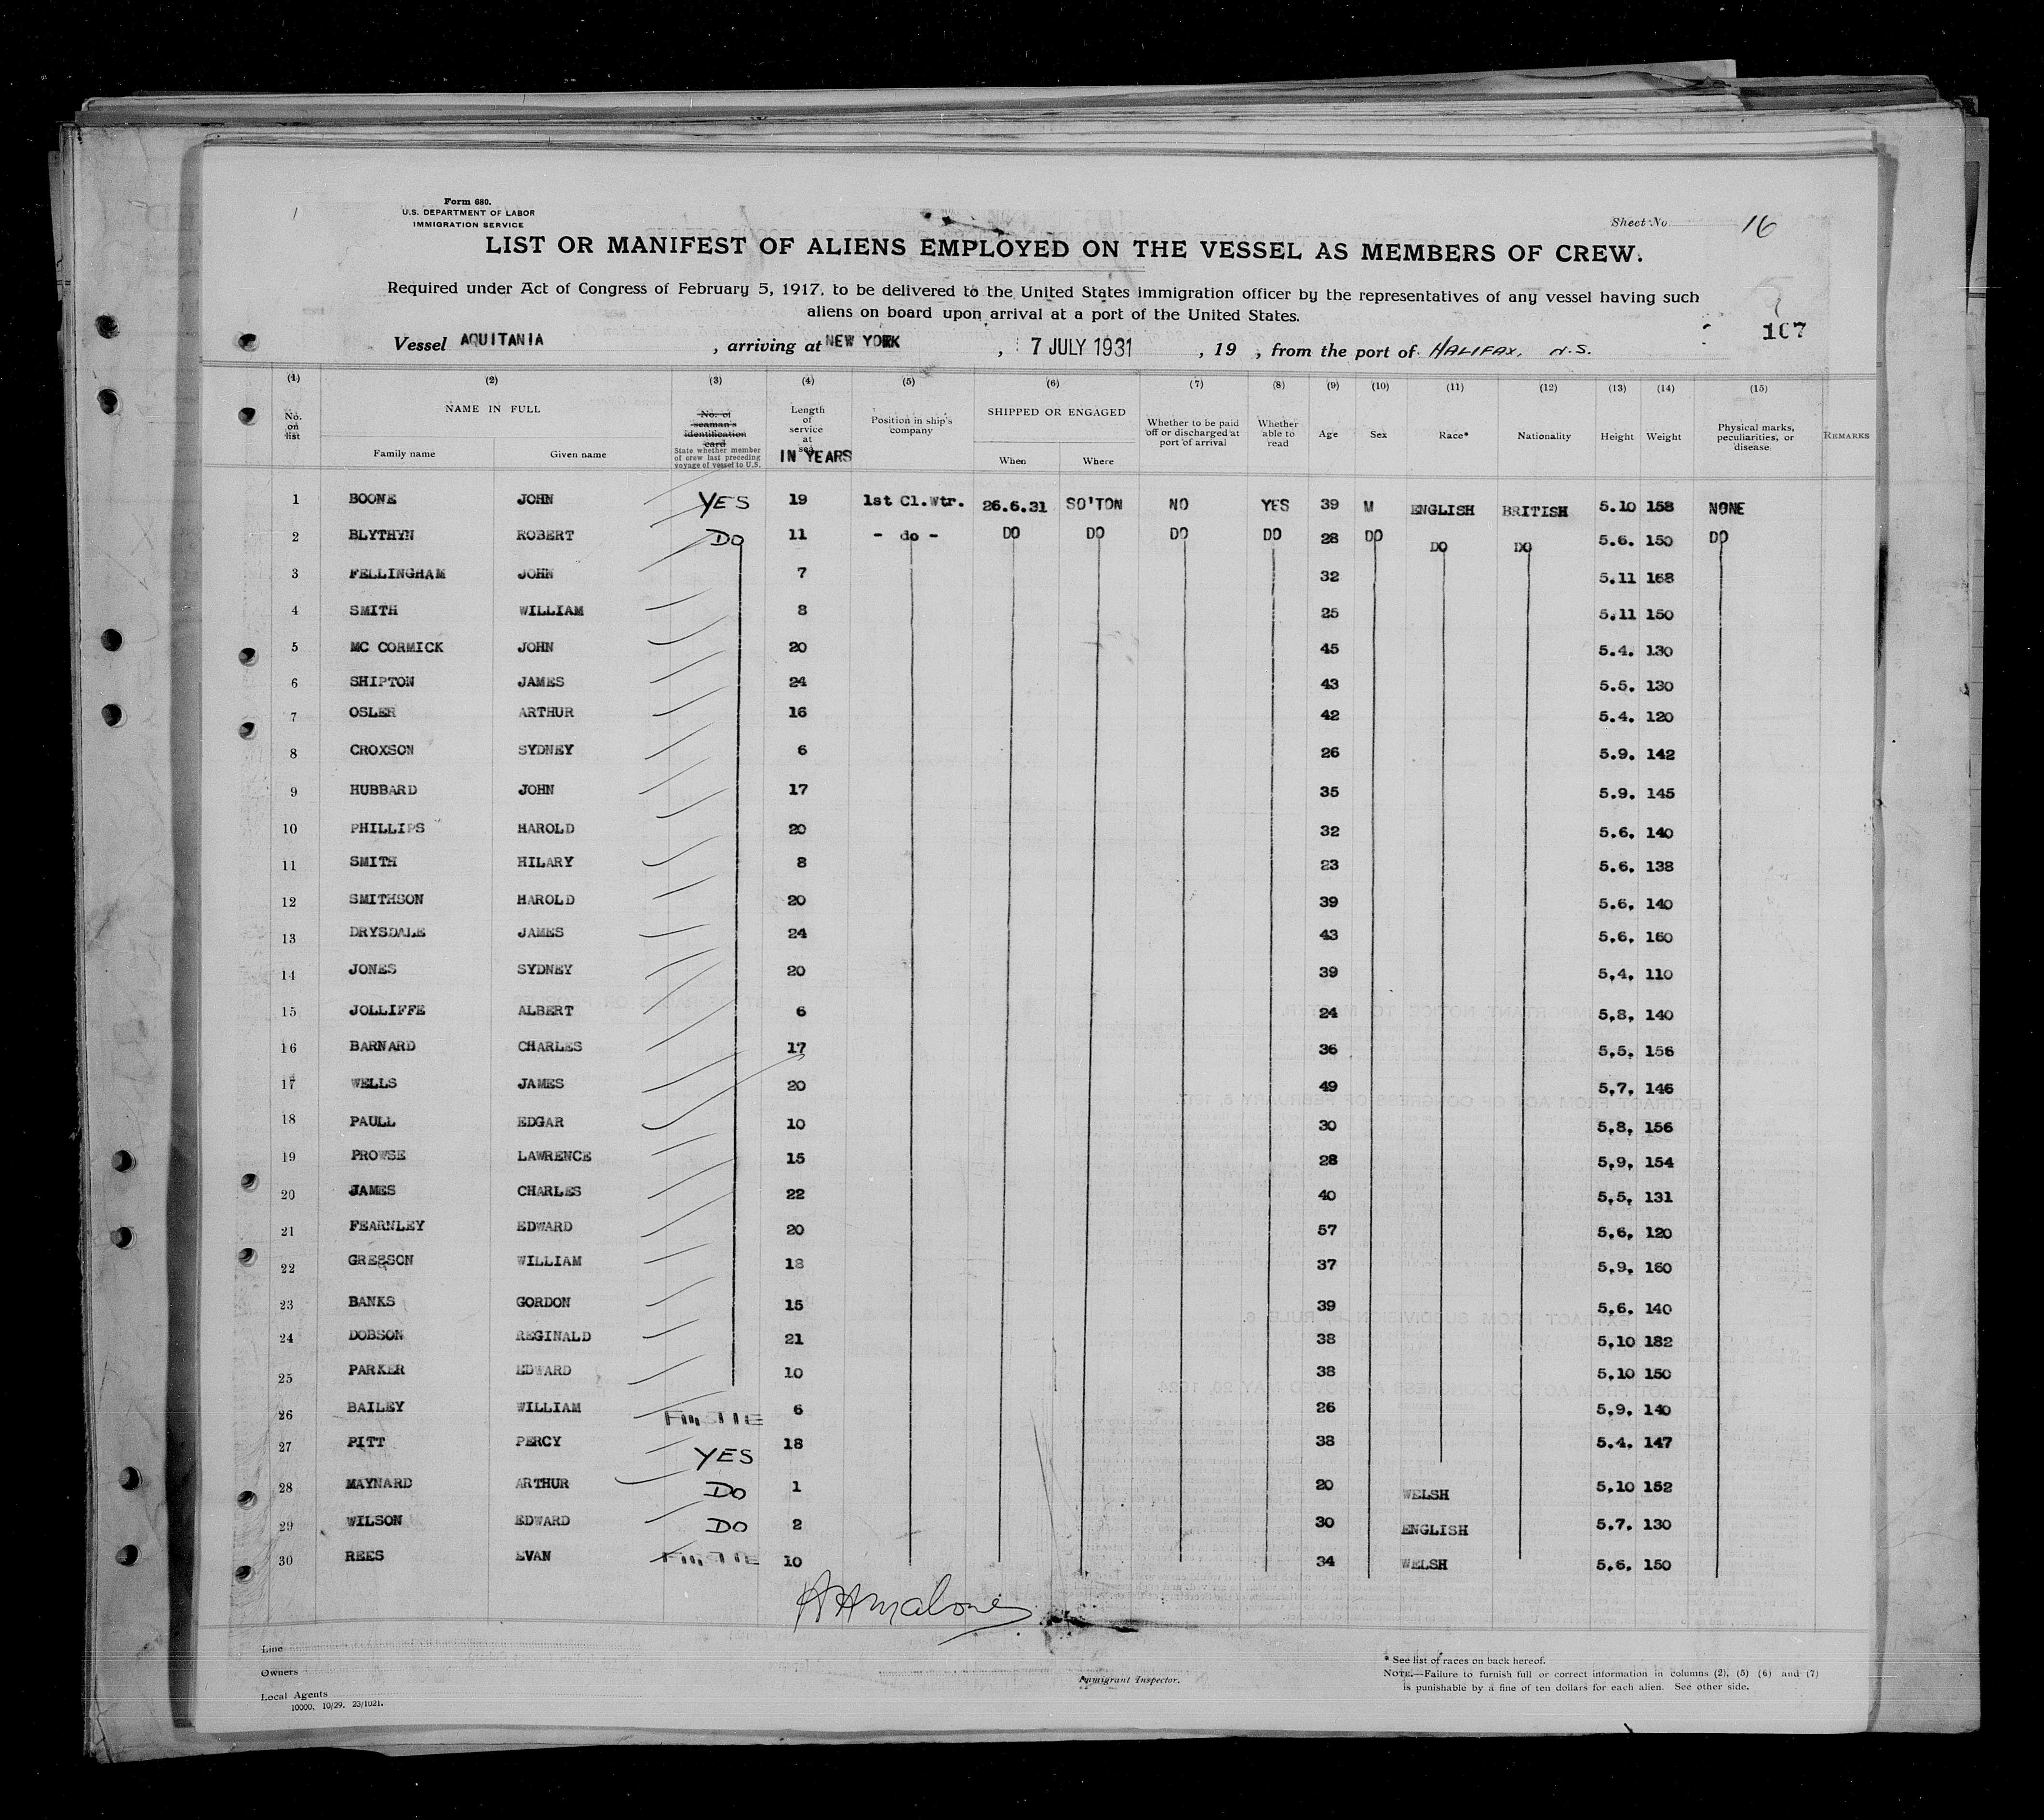 Form 680.
U.S. DEPARTMENT OF LABOR
IMMIGRATION SERVICE
Sheet No. 16
LIST OR MANIFEST OF ALIENS EMPLOYED ON THE VESSEL AS MEMBERS OF CREW.
Required under Act of Congress of February 5, 1917, to be delivered to the United States immigration officer by the representatives of any vessel having such
aliens on board upon arrival at a port of the United States.
107
Vessel AQUITANIA , arriving at NEW YORK , 7 JULY 1931 , 19 , from the port of HALIFAX, N.S.
(1) (2) (3) (4) (5) (6) (7) (8) (9) (10) (11) (12) (13) (14) (15)
No. on list NAME IN FULL Family name Given name No. of seaman's identification card State whether member of crew last preceding voyage of vessel to U.S. Length of service at sea IN YEARS Position in ship's company SHIPPED OR ENGAGED When Where Whether to be paid off or discharged at port of arrival Whether able to read Age Sex Race* Nationality Height Weight Physical marks, peculiarities, or disease REMARKS
1 BOONE JOHN YES 19 1st Cl.Wtr. 26.6.31 SO'TON NO YES 39 M ENGLISH BRITISH 5.10 158 NONE
2 BLYTHYN ROBERT DO 11 - do - DO DO DO DO 28 DO DO DO 5.6. 150 DO
3 FELLINGHAM JOHN 7 32 5.11 168
4 SMITH WILLIAM 8 25 5.11 150
5 MC CORMICK JOHN 20 45 5.4. 130
6 SHIPTON JAMES 24 43 5.5. 130
7 OSLER ARTHUR 16 42 5.4. 120
8 CROXSON SYDNEY 6 26 5.9. 142
9 HUBBARD JOHN 17 35 5.9. 145
10 PHILLIPS HAROLD 20 32 5.6. 140
11 SMITH HILARY 8 23 5.6. 138
12 SMITHSON HAROLD 20 39 5.6. 140
13 DRYSDALE JAMES 24 43 5.6. 160
14 JONES SYDNEY 20 39 5.4. 110
15 JOLLIFFE ALBERT 6 24 5.8. 140
16 BARNARD CHARLES 17 36 5.5. 156
17 WELLS JAMES 20 49 5.7. 146
18 PAULL EDGAR 10 30 5.8. 156
19 PROWSE LAWRENCE 15 28 5.9. 154
20 JAMES CHARLES 22 40 5.5. 131
21 FEARNLEY EDWARD 20 57 5.6. 120
22 GRESSON WILLIAM 18 37 5.9. 160
23 BANKS GORDON 15 39 5.6. 140
24 DOBSON REGINALD 21 38 5.10 182
25 PARKER EDWARD 10 38 5.10 150
26 BAILEY WILLIAM 6 26 5.9. 140
27 PITT PERCY YES 18 38 5.4. 147
28 MAYNARD ARTHUR DO 1 20 WELSH 5.10 152
29 WILSON EDWARD DO 2 30 ENGLISH 5.7. 130
30 REES EVAN 10 34 WELSH 5.6. 150
Line
Owners
Local Agents
10000, 10/29. 23/1021.
Immigrant Inspector.
* See list of races on back hereof.
NOTE.—Failure to furnish full or correct information in columns (2), (5) (6) and (7)
is punishable by a fine of ten dollars for each alien. See other side.